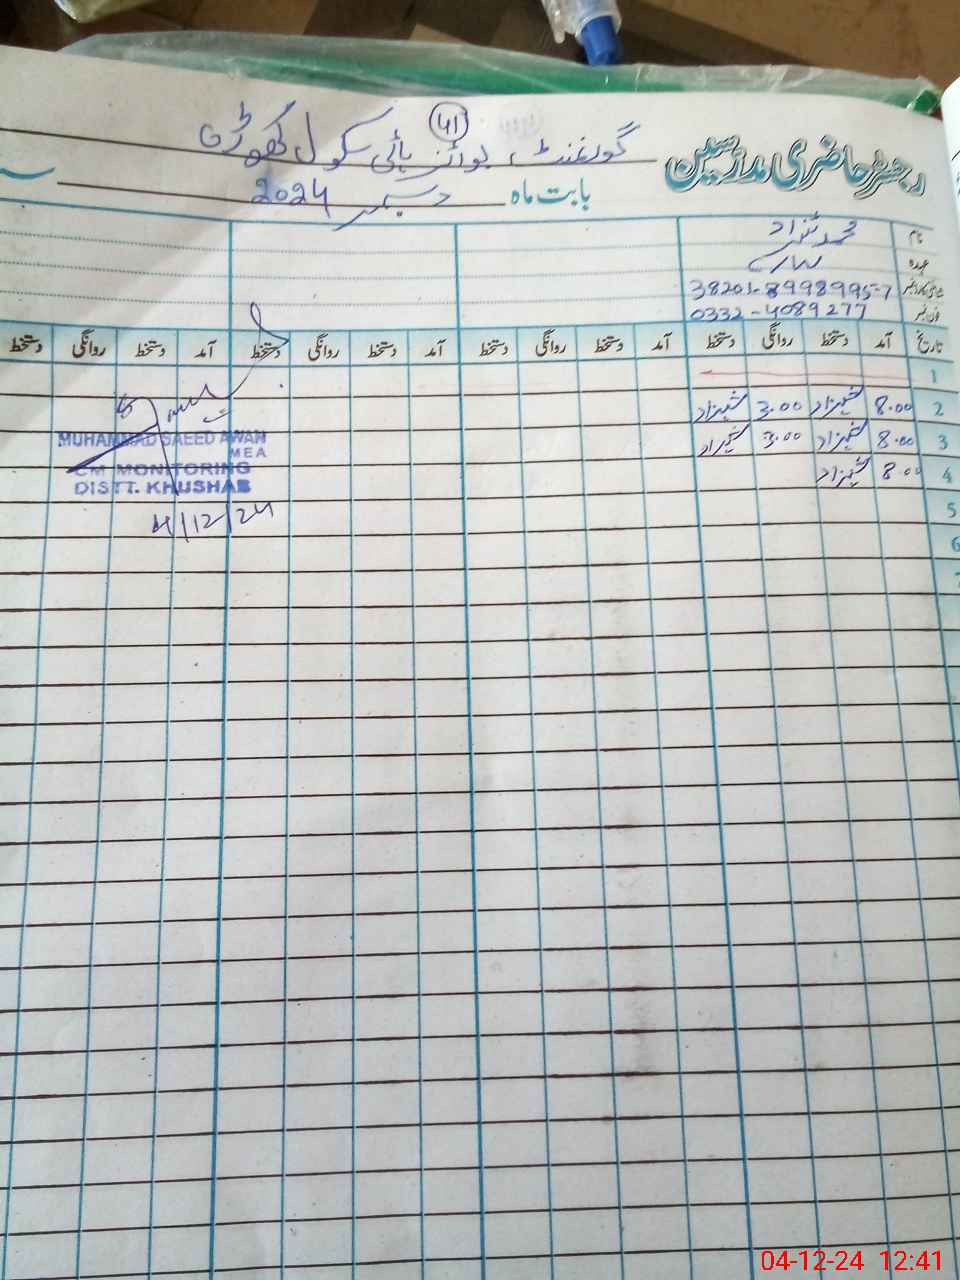 41
رجسٹر حاضری مدرسین گورنمنٹ بوائز ہائی سکول کھوڑہ
بابت ماہ دسمبر 2024
نام محمد شہزاد
عہدہ
شناختی کارڈ نمبر 38201-8998995-7
فون نمبر 0332-4089277
تاریخ آمد دستخط روانگی دستخط آمد دستخط روانگی دستخط آمد دستخط روانگی دستخط آمد دستخط روانگی دستخط
1
2 8.00 شہزاد 3.00 شہزاد
3 8.00 شہزاد 3.00 شہزاد
4 8.00 شہزاد
5
6
7
MUHAMMAD SAEED AWAN
MEA
CM MONITORING
DISTT. KHUSHAB
4/12/24
04-12-24 12:41